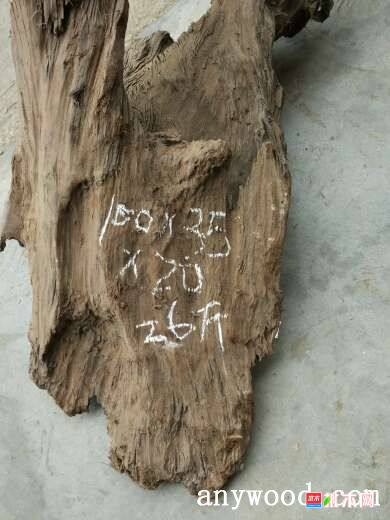 100x35
x20
26斤
anywood.com